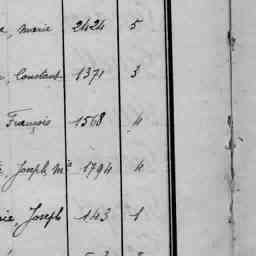 Marie 2424 5
Constant 1371 3
François 1568 4
Joseph Mie 1794 4
Joseph 143 1